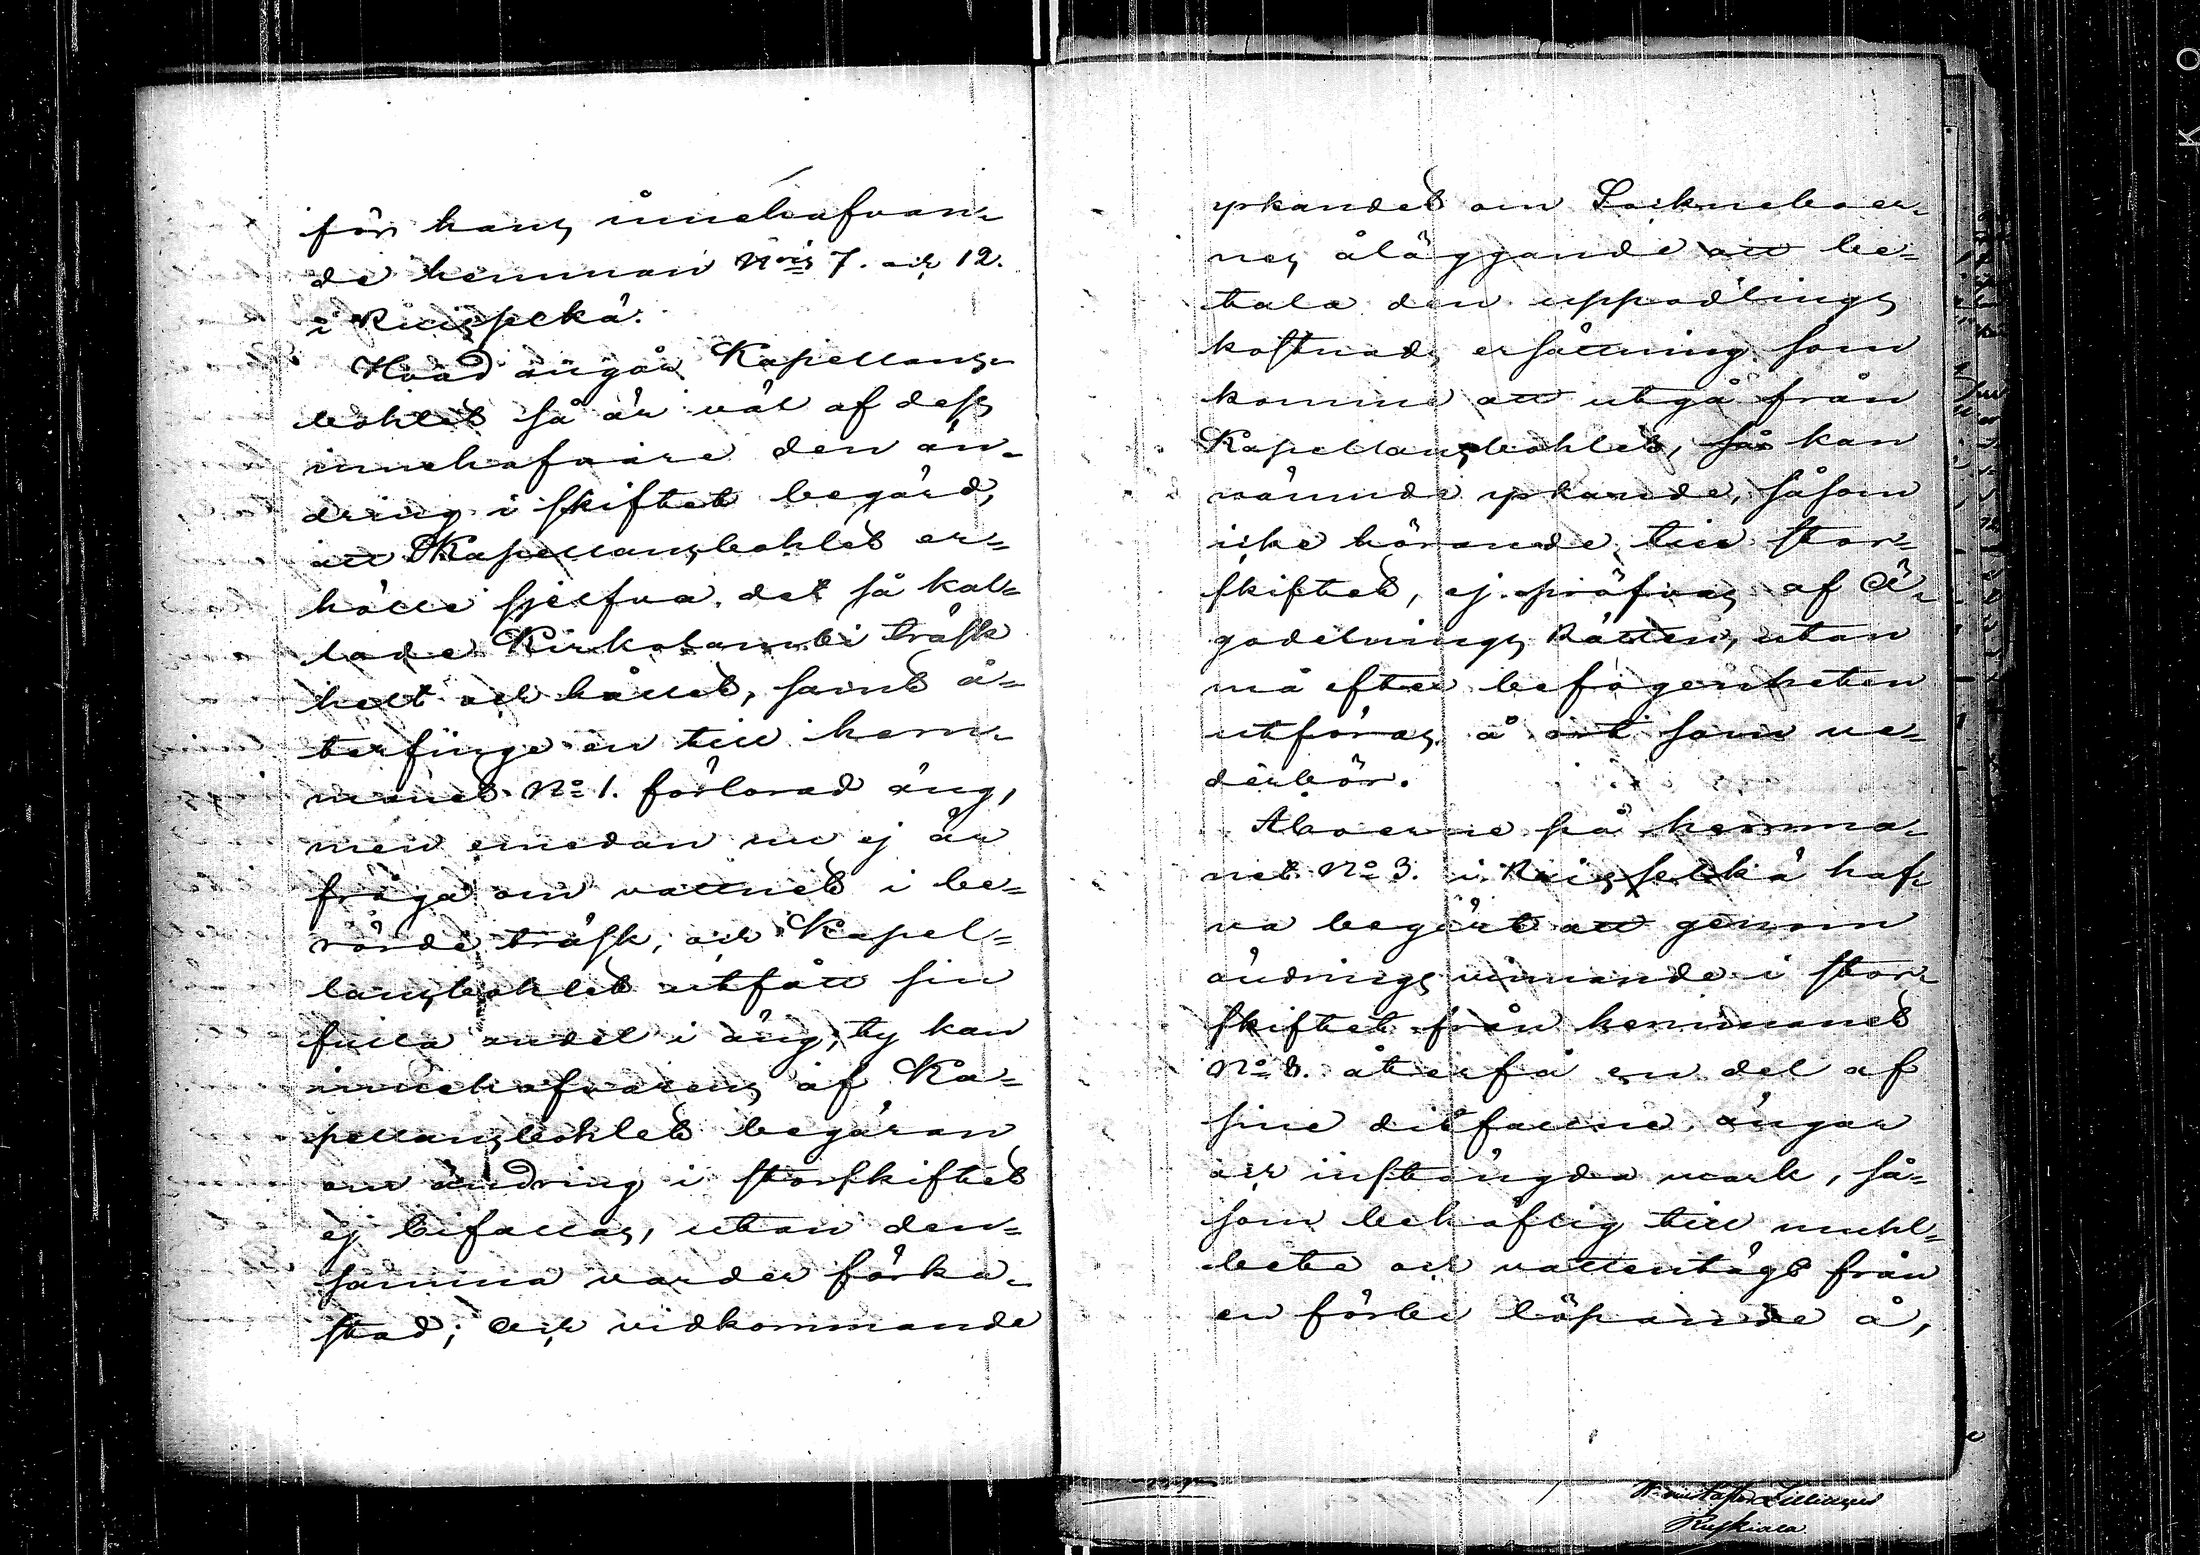 för hans innehafvan-
de hemman N:ris 7. och 12.
i Ruispelkä.
Hvad angår Kapellans-
bohlet så är väl af dess
innehafvare den än-
dring i skiftet begärd,
att Kapellansbohlet er-
hölle sjelfva det så kal-
lade Kirkolambi träsk
helt och hållet, samt å-
terfinge en till hem-
manet N:o 1. förlorad äng,
men emedan nu ej är
fråga om vattnet i be-
rörde träsk, och Kapel-
lansbohlet utfått sin
fulla andel i äng, ty kan
innehafvarens af Ka-
pellansbohlet begäran
om ändring i storskiftet
ej bifallas, utan den-
samma varder förka-
stad; Och vidkommande
yrkandet om Soikneboer-
nes åläggande att be-
tala den uppodlings
kostnads ersättning som
komme att utgå från
Kapellansbohlet, så kan
nämnde yrkande, såsom
icke hörande till stor-
skiftet, ej pröfvas af Ä-
godelnings Rätten, utan
må efter befogenheten
utföras å ort som ve-
derbör.
Åboerne på hemma-
net N:o 3. i Ruispelkä haf-
va begärt att genom
ändrings vinnande i stor-
skiftet från hemmanet
N:o 8. återfå en del af
sine ditfallne ängar
och instängda mark, så-
som behöflig till muhl-
bete och vattentägt från
en förbi löpande å,
Ruskiala